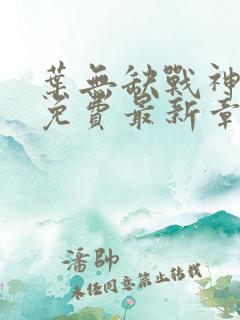 葉無缺戰神
免費最新章
潘帥
未經同意禁止轉載